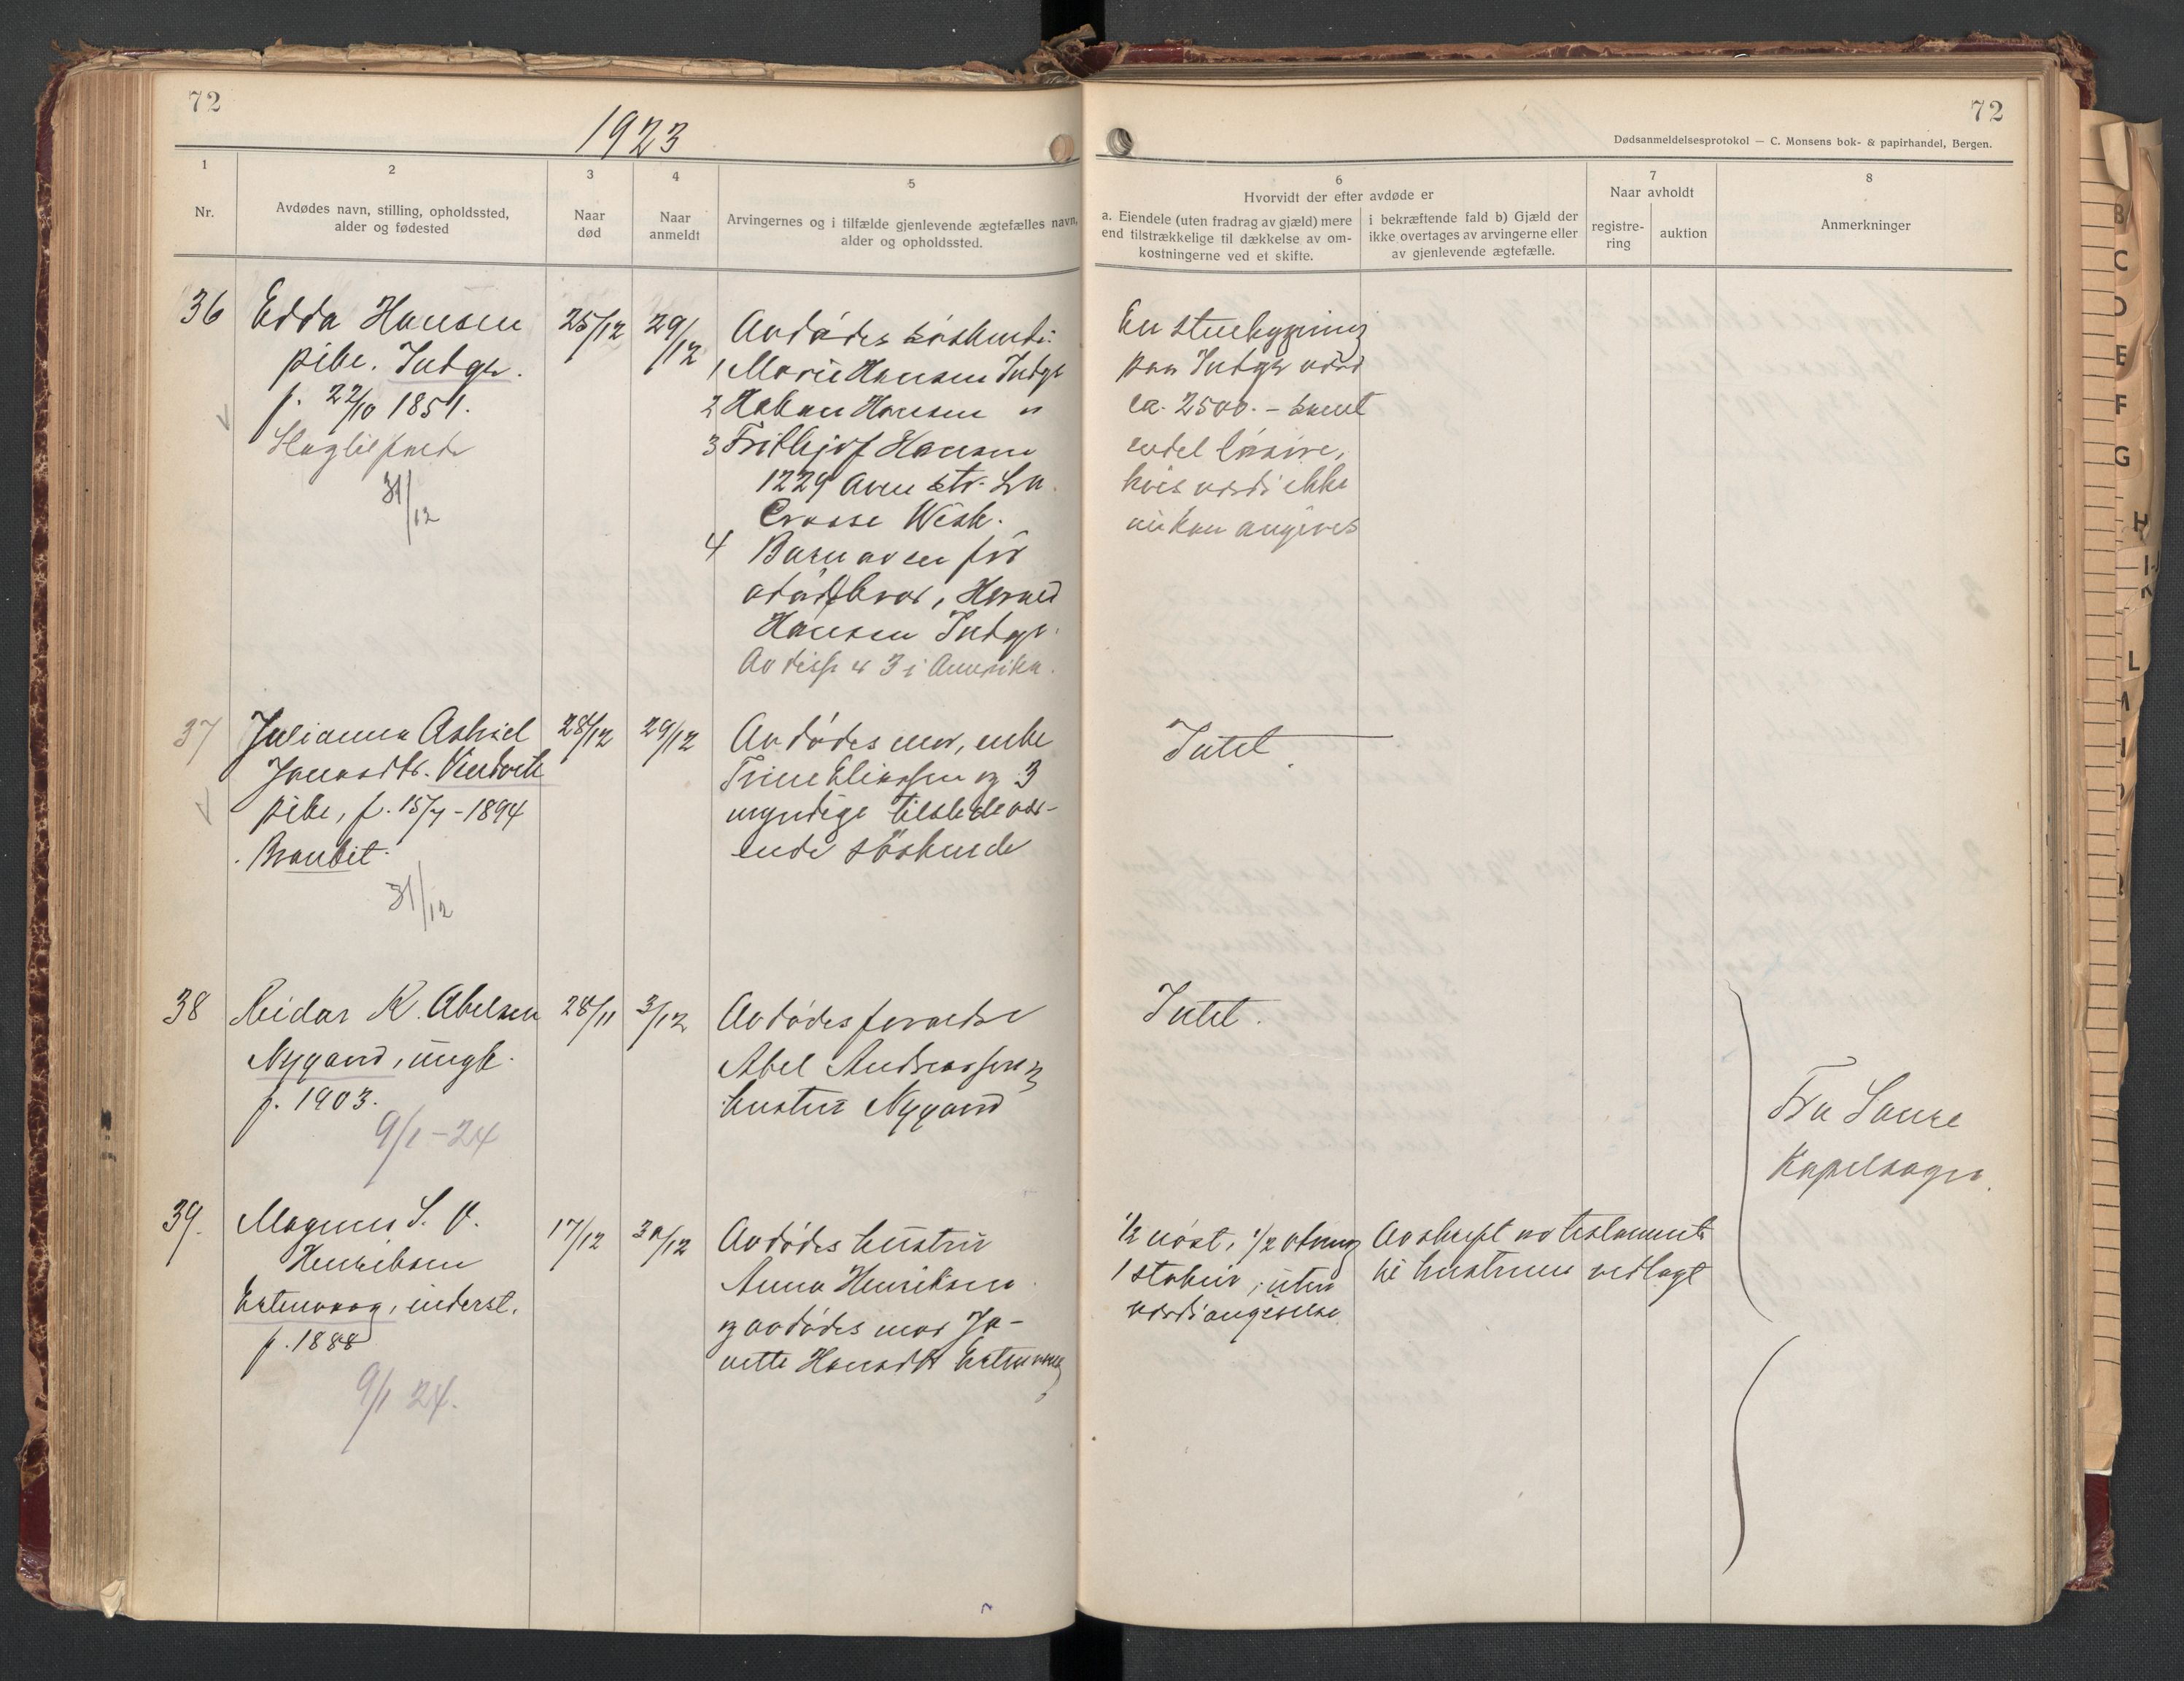 72
1923
1
2
3
4
5
Nr.
Avdødes navn, stilling, opholdssted,
alder og fødested
Naar
død
Naar
anmeldt
Arvingernes og i tilfælde gjenlevende ægtefælles navn,
alder og opholdssted.
36
Edda Hansen
pike. Indgr.
f. 22/10 1851.
31/12
25/12
29/12
Avdødes søskende:
1 Marie Hansen Indgr
2 Hakan Hansen "
3 Frithjof Hansen
1229 Aven str. La
Crosse Wisk.
4 Barn av en før
avdød bror,
Hansen Indgr.
Av disse er 3 i Amerika.
37
Julianna
pike, f. 15/7-1894
31/12
28/12
29/12
Avdødes mor, enke
Trine Eliassen og 3
myndige tilstedevær-
ende søskende
38
Reidar K. Abelsen
Nygaard, ungk.
f. 1903.
9/1-24
28/11
3/12
Avdødes forældre
Abel Andreassen og
hustru Nygaard
39.
Magnus S. O.
Henriksen
inderst.
f. 1888
9/1 24.
17/12
30/12
Avdødes hustru
Anna Henriksen
og avdødes mor Ja-
nette Hansdtr
72
Dødsanmeldelsesprotokol — C. Monsens bok- & papirhandel, Bergen.
6
Hvorvidt der efter avdøde er
a. Eiendele (uten fradrag av gjæld) mere
end tilstrækkelige til dækkelse av om-
kostningerne ved et skifte.
i bekræftende fald b) Gjæld der
ikke overtages av arvingerne eller
av gjenlevende ægtefælle.
7
Naar avholdt
registre-
ring
auktion
8
Anmerkninger
En stuebygning
paa Indgr værd
ca. 2500.- samt
endel løsøre,
hvis værdi ikke
nu kan angives
Intet.
Intet.
1/2 nøst, 1/2
1 stabur, uten
værdiangivelse.
Avskrift av testamente
til hustruen vedlagt
Fra
Kapelsogn.
B
C
D
E
F
G
H
K
L